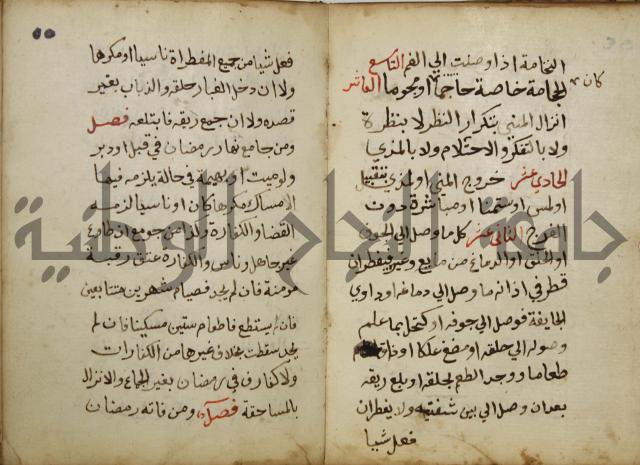 النخامة اذا وصلت الي الفم التاسع
كان
الحجامة خاصة حاجما او محجوما العاشر
انزال المني بتكرار النظر لا بنظرة
ولا بالتفكر والاحتلام ولا بالمذي
الحادي عشر خروج المني او المذي بتقبيل
او لمس او استمنا او مباشرة دون
الفرج الثاني عشر كلما وصل الي الجوف
او الحلق او الدماغ من مايع وغيره فيفطر ان
قطر في اذنه ما وصل الي دماغه او داوي
الجايفة فوصل الي جوفه او اكتحل بما علم
وصوله الي حلقه او مضغ علكا او ذاق
طعاما ووجد الطعم بحلقه او بلع ريقه
بعد ان وصل الي بين شفتيه ولا يفطر ان
فعل شيا
٥٥
فعل شيا من جميع المفطراة ناسيا او مكرها
ولا ان دخل الغبار حلقه والذباب بغير
قصده ولا ان جمع ريقه فابتلعه فصل
ومن جامع نهار رمضان في قبل او دبر
ولو لميت او بهيمة في حالة يلزمه فيها
الامساك مكرها كان او ناسيا لزمه
القضا والكفارة وكذا من جومع ان طاوع
غير جاهل وناس والكفارة عتق رقبة
مومنة فان لم يجد فصيام شهرين متتابعين
فان لم يستطع فاطعام ستين مسكينا فان لم
يجد سقطت بخلاف غيرها من الكفارات
ولا كفارة في رمضان بغير الجماع والانزال
بالمساحقة فصل ومن فاته رمضان
جامعة النجاح الوطنية